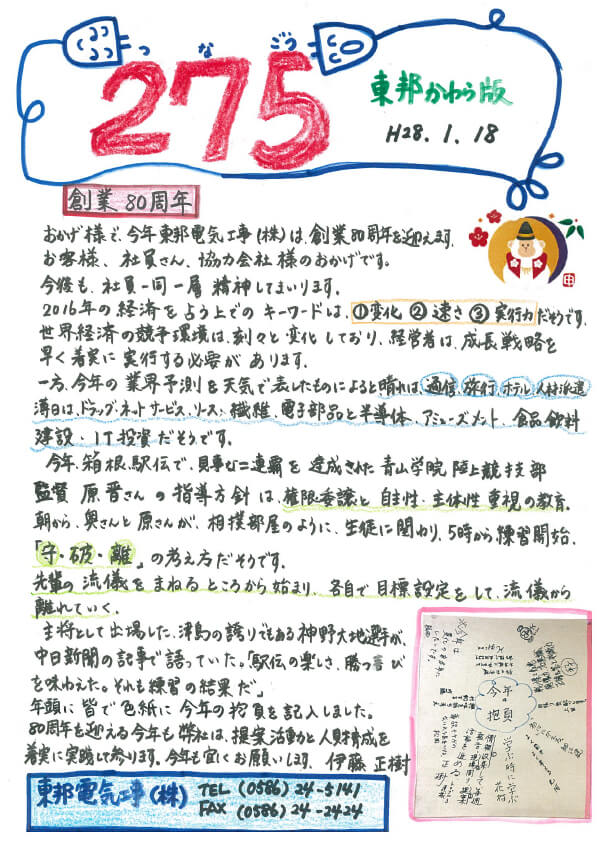 つなごう
275
東邦かわら版
H28.1.18
創業80周年
おかげ様で、今年東邦電気工事(株)は、創業80周年を迎えます。
お客様、社員さん、協力会社様のおかげです。
今後も、社員一同一層精神してまいります。
2016年の経済をよう上でのキーワードは、①変化②速さ③実行力だそうです。
世界経済の競争環境は、刻々と変化しており、経営者は、成長戦略を
早く着実に実行する必要があります。
一方、今年の業界予測を天気で表したものによると晴れは、通信、旅行、ホテル、人材派遣
薄日は、ドラッグ・ネットサービス・リース・繊維、電子部品と半導体、アミューズメント、食品・飲料
建設・IT投資だそうです。
今年、箱根駅伝で、見事な二連覇を達成された青山学院陸上競技部
監督 原晋さんの指導方針は、権限委譲と自主性・主体性重視の教育。
朝から、奥さんと原さんが、相撲部屋のように、生徒に関わり、5時から練習開始、
「守・破・離」の考え方だそうです。
先輩の流儀をまねるところから始まり、各自で目標設定をして、流儀から
離れていく。
主将として出場した、津島の誇りでもある神野大地選手が、
中日新聞の記事で語っていた。「駅伝の楽しさ、勝つ喜び
を味わえた。それも練習の結果だ」
年頭に皆で色紙に今年の抱負を記入しました。
80周年を迎える今年も弊社は、提案活動と人財育成を
着実に実践して参ります。今年も宜くお願いします。 伊藤 正樹
今年の抱負
学ぶ時に学ぶ
東邦電気工事(株)
TEL (0586) 24-5141
FAX (0586) 24-2424